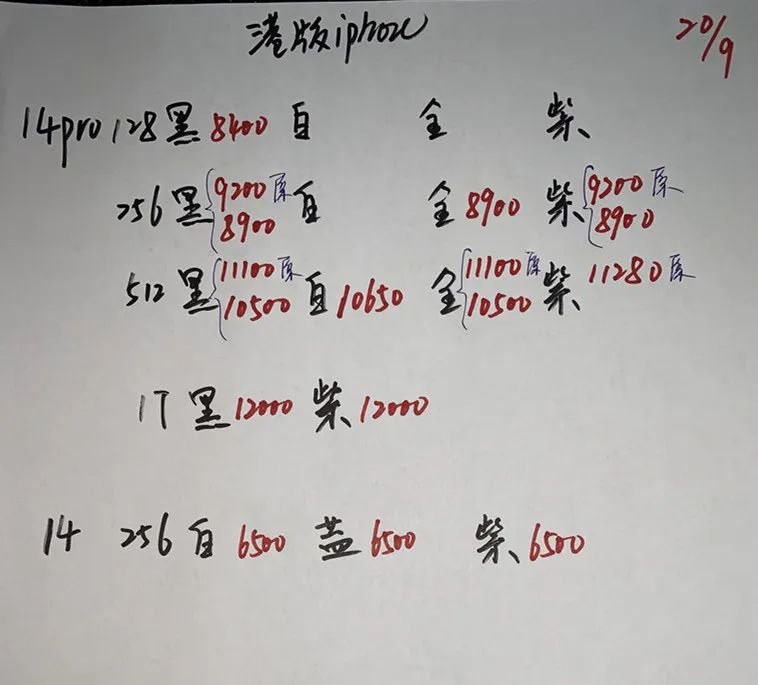 港版iphone 20/9
14pro 128 黑 8400 白 全 柴
256 黑 9200原 8900 白 全 8900 柴 9200原 8900
512 黑 11100原 10500 白 10650 全 11100原 10500 柴 11280原
1T 黑 12000 柴 12000
14 256 白 6500 蓝 6500 柴 6500